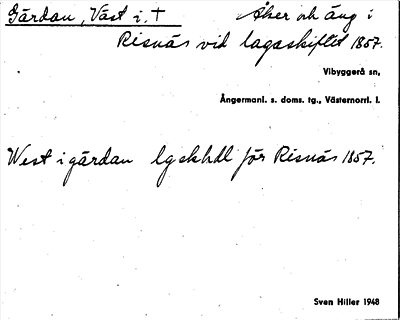 Gärdan, Väst i, † Åker och äng i
Risnäs vid lagaskiftet 1857.
Vibyggerå sn,
Ångermanl. s. doms. tg., Västernorrl. l.
West i gärdan lgskhdl för Risnäs 1857.
Sven Hiller 1948